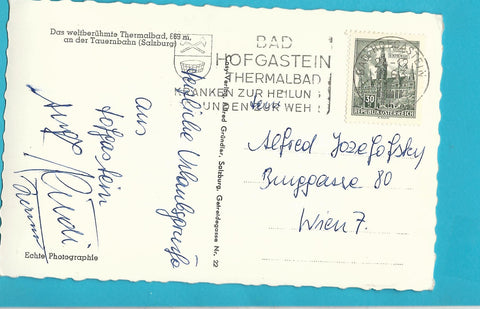 Das weltberühmte Thermalbad, 869 m,
an der Tauernbahn (Salzburg)
Herzliche Urlaubsgrüße
aus
Hofgastein
Rudi
Echte Photographie
Alfred Gründler, Salzburg, Getreidegasse Nr. 22
BAD
HOFGASTEIN
THERMALBAD
KRANKEN ZUR HEILUNG
GESUNDEN ZUR WEHR
REPUBLIK ÖSTERREICH
Alfred Josefofsky
Burggasse 80
Wien 7.